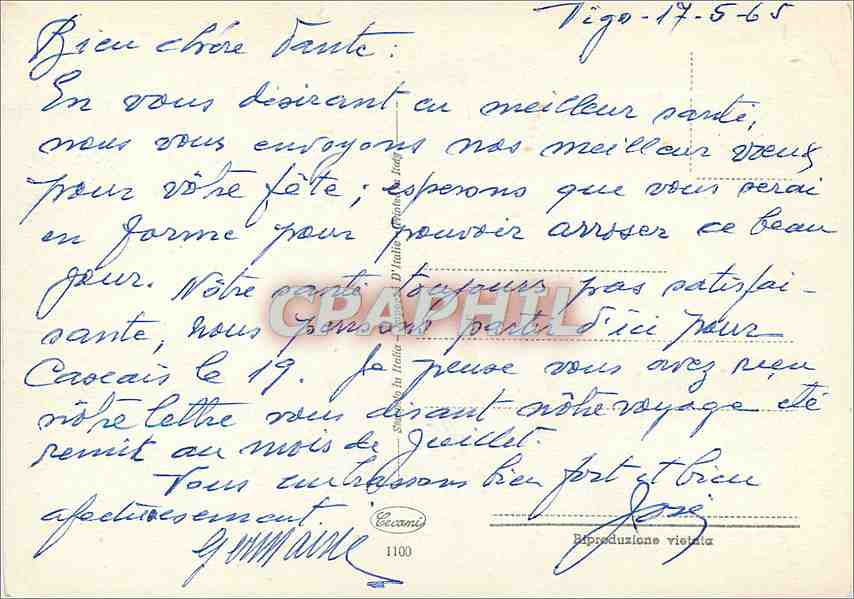 Vigo-17-5-65
Bien chère Tante:
En vous désirant en meilleur santé,
nous vous envoyons nos meilleur vœux
pour vôtre fête; esperons que vous serai
en forme pour pouvoir arroser ce beau
jour. Nôtre santé toujours pas satisfai-
sante, nous pensons partir d'ici pour
Cascais le 19. Je pense vous avez reçu
nôtre lettre vous disant nôtre voyage été
remit au mois de Juillet.
Vous embrassons bien fort et bien
afectuesement
José
Germaine
CPAPHIL
Stampato in Italia - D'Italie - Printed in Italy
Cecami
1100
Riproduzione vietata